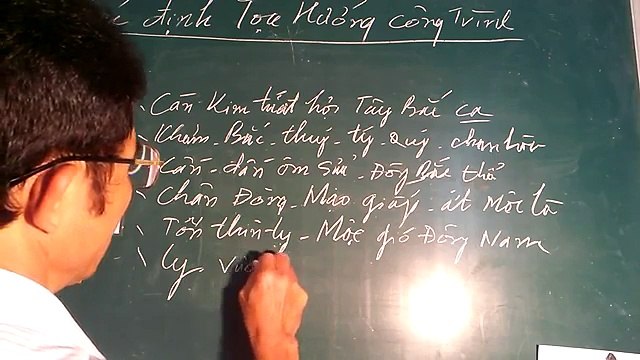 định Tọa Hướng công Trình
Càn Kim tuất hợi Tây Bắc ca
Khảm - Bắc - thuỷ - tý - Quý - nhâm
Cấn - dần ôm sửu - Đông Bắc thổ
Chấn Đông - Mạo giáp - ất Mộc là
Tốn thìn tỵ - Mộc gió Đông Nam
Ly -